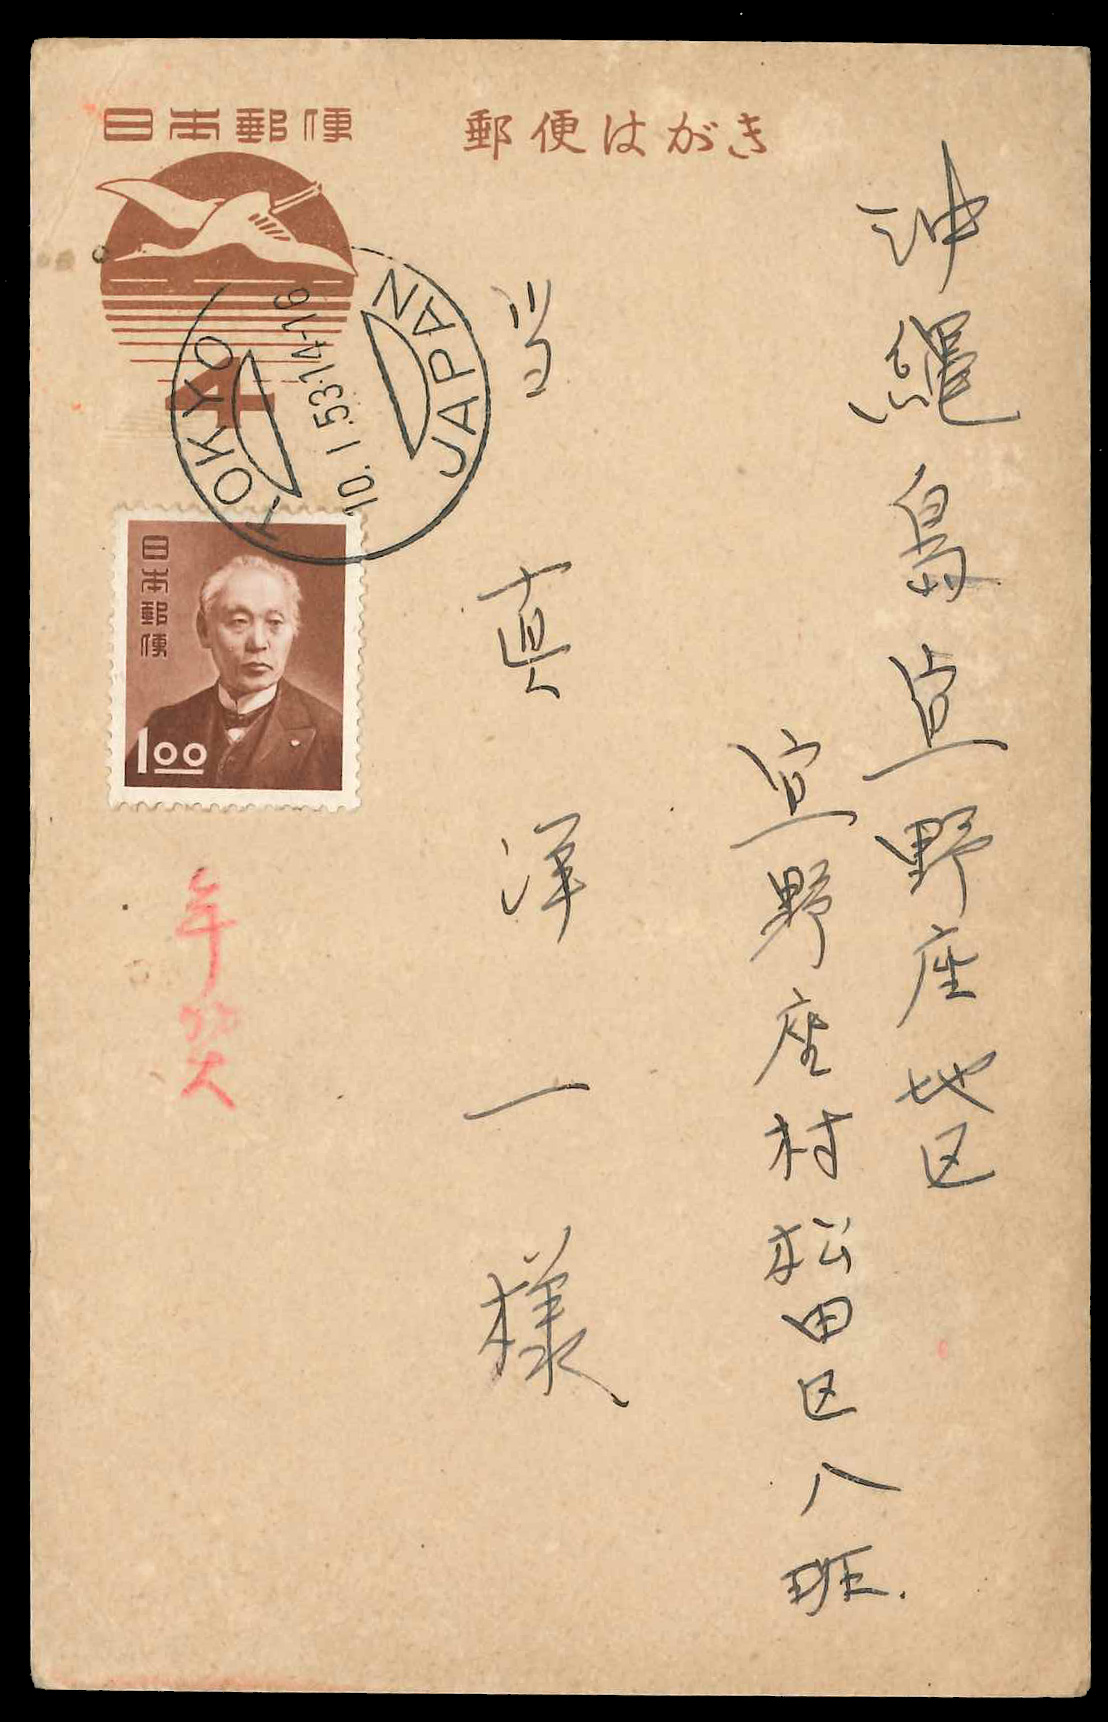 日本郵便
郵便はがき
4
TOKYO
10.1.53.14-16
JAPAN
日本郵便
1.00
年賀
沖縄島宜野座地区
宜野座村松田区八班.
当真洋一様